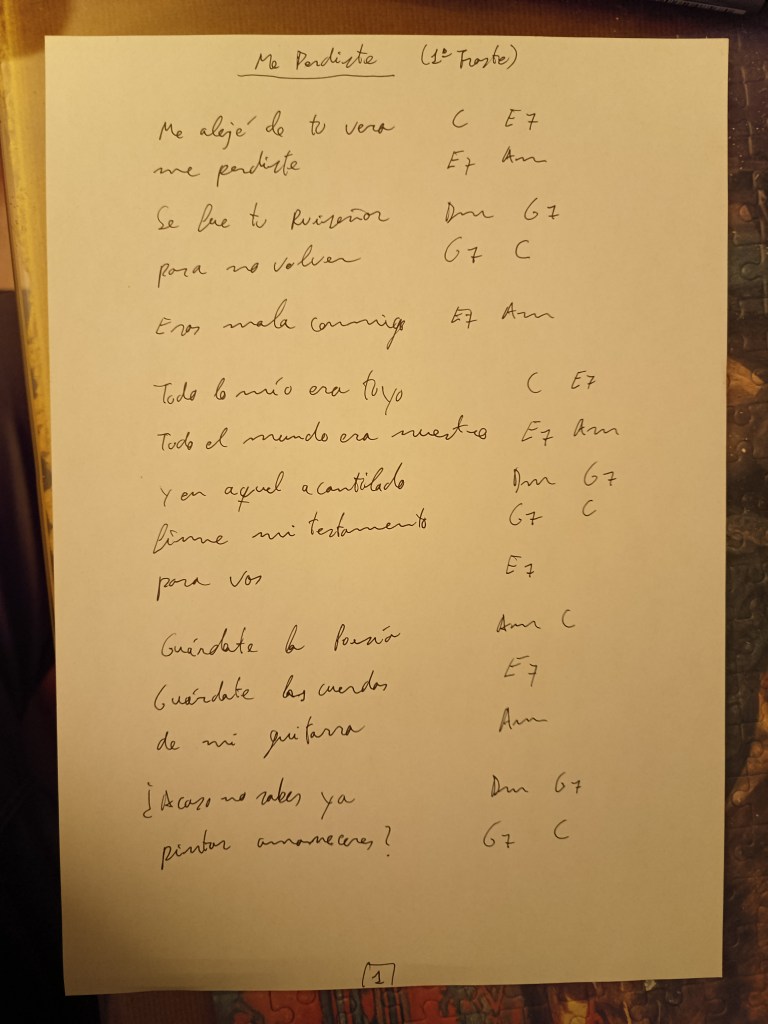 Me Perdiste (1ª Traste)
Me alejé de tu vera C E7
me perdiste E7 Am
Se fue tu Ruiseñor Dm G7
para no volver G7 C
Eras mala conmigo E7 Am
Todo lo mío era tuyo C E7
Todo el mundo era nuestro E7 Am
Y en aquel acantilado Dm G7
firme mi testamento G7 C
para vos E7
Guárdate la Poesía Am C
Guárdate las cuerdas E7
de mi guitarra Am
¿Acaso no sabes ya Dm G7
pintar amaneceres? G7 C
1